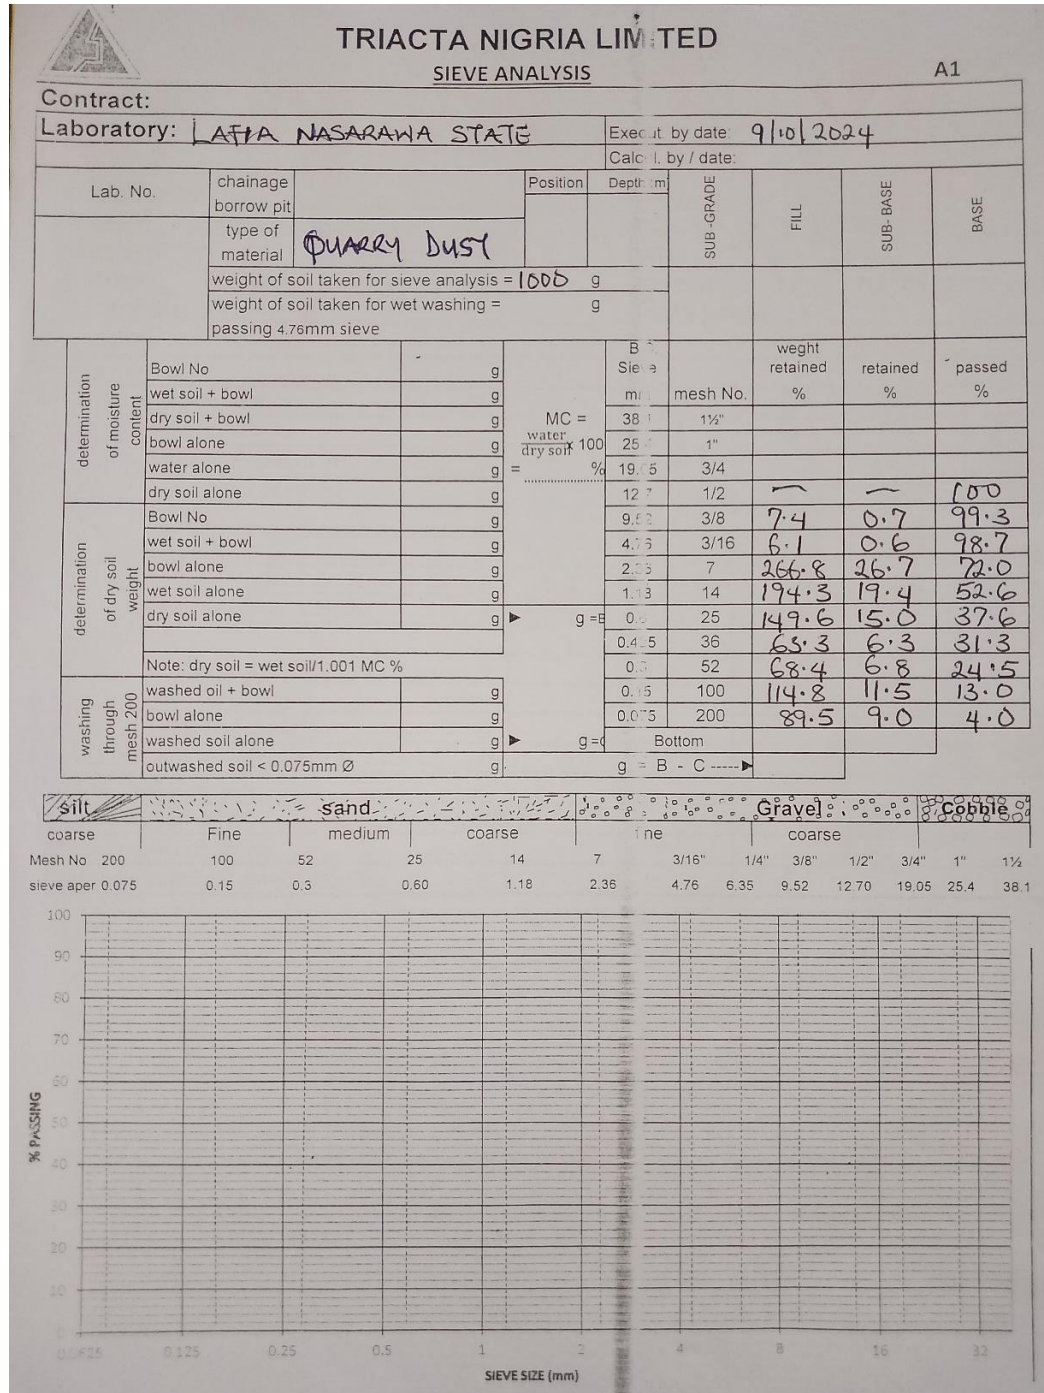 TRIACTA NIGRIA LIMITED
SIEVE ANALYSIS
A1
Contract:
Laboratory: LAFIA NASARAWA STATE Execut. by date: 9/10/2024
Calcul. by / date:
Lab. No. chainage borrow pit Position Depth m SUB-GRADE FILL SUB-BASE BASE
type of material QUARRY DUST
weight of soil taken for sieve analysis = 1000 g
weight of soil taken for wet washing = g
passing 4.76mm sieve
determination of moisture content
Bowl No g
wet soil + bowl g
dry soil + bowl g
bowl alone g
water alone g
dry soil alone g
MC =
water
dry soil x 100
= %
determination of dry soil weight
Bowl No g
wet soil + bowl g
bowl alone g
wet soil alone g
dry soil alone g ► g =B
Note: dry soil = wet soil/1.001 MC %
washing through mesh 200
washed oil + bowl g
bowl alone g
washed soil alone g ► g =C
outwashed soil < 0.075mm Ø g g = B - C -----►
Sieve mm mesh No. weght retained % retained % passed %
38.1 1½"
25.4 1"
19.05 3/4
12.7 1/2 — — 100
9.52 3/8 7.4 0.7 99.3
4.76 3/16 6.1 0.6 98.7
2.36 7 266.8 26.7 72.0
1.18 14 194.3 19.4 52.6
0.6 25 149.6 15.0 37.6
0.425 36 63.3 6.3 31.3
0.3 52 68.4 6.8 24.5
0.15 100 114.8 11.5 13.0
0.075 200 89.5 9.0 4.0
Bottom
silt sand Gravel Cobble
coarse Fine medium coarse coarse
Mesh No 200 100 52 25 14 7 3/16" 1/4" 3/8" 1/2" 3/4" 1" 1½
sieve aper 0.075 0.15 0.3 0.60 1.18 2.36 4.76 6.35 9.52 12.70 19.05 25.4 38.1
% PASSING
100
90
80
70
60
50
40
30
20
10
0
0.0625 0.125 0.25 0.5 1 2 4 8 16 32
SIEVE SIZE (mm)